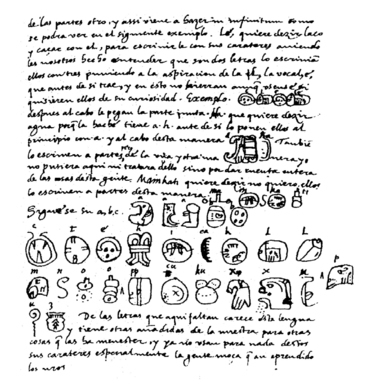 de las partes otro, y assi viene a hazer in infinitum como
se podra ver en el siguiente exemplo. Lé, quiere dezir laço
y caçar con el, para escrivirle con sus carateres aviendo
les nosotros hecho entender que son dos letras lo escrivian
ellos con tres puniendo a la aspiracion de la l, la vocal, é,
que antes de si trae, y en esto no hierran aunq usense, si
quisieren ellos de su curiosidad. Exemplo.
despues al cabo le pegan la parte junta. Ha que quiere dezir
agua porq la hache tiene a.h. ante de si lo ponen ellos al
principio con a. y al cabo desta manera ha Tambie
lo escriven a partes, de la una y otra ma nera yo
no pusiera aqui ni tratara dello sino por dar cuenta entera
de las cosas desta gente. Mainkati quiere dezir no quiero, ellos
lo escriven a partes desta manera
Siguese su a, b, c.
c t é h i ca k l l
m n o o pp cu ku x x u p
u z
De las letras que aqui faltan carece esta lengua
y tiene otras añadidas de la nuestra para otras
cosas q las ha menester, y ya no usan para nada destos
sus carateres especialmente la gente moça q an aprendido
los nros